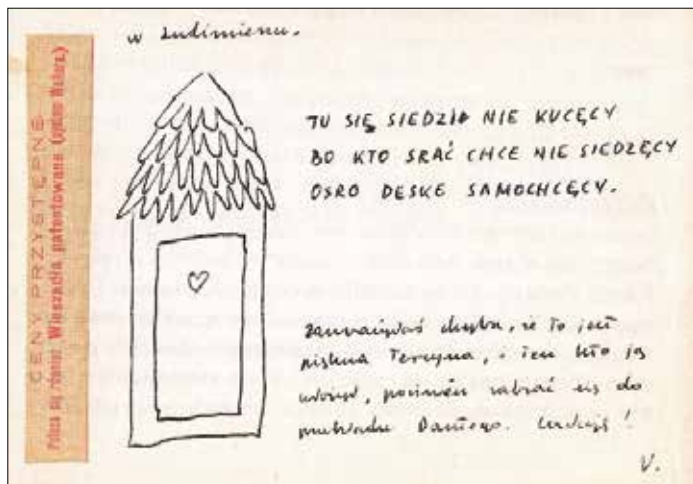 w Ludimieniu.
CENY PRZYSTĘPNE
Poleca się również Wieszadła patentowane (system Mażura.)
TU SIĘ SIEDZI NIE KUCĘCY
BO KTO SRAĆ CHCE NIE SIEDZĘCY
OSRO DESKE SAMOCHCĘCY.
zauważyłaś chyba, że to jest
piękna tercyna, i ten kto ją
ułożył, powinien zabrać się do
przekładu Dantego. Całuję!
V.